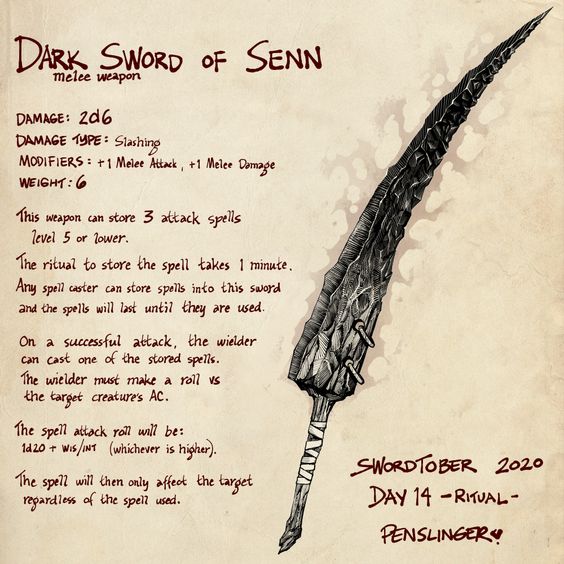 DARK SWORD OF SENN
melee weapon
DAMAGE: 2d6
DAMAGE TYPE: Slashing
MODIFIERS: +1 Melee Attack, +1 Melee Damage
WEIGHT: 6
This weapon can store 3 attack spells
level 5 or lower.
The ritual to store the spell takes 1 minute.
Any spell caster can store spells into this sword
and the spells will last until they are used.
On a successful attack, the wielder
can cast one of the stored spells.
The wielder must make a roll vs
the target creature's AC.
The spell attack roll will be:
1d20 + WIS/INT (whichever is higher).
The spell will then only affect the target
regardless of the spell used.
SWORDTOBER 2020
DAY 14 -RITUAL-
PENSLINGER